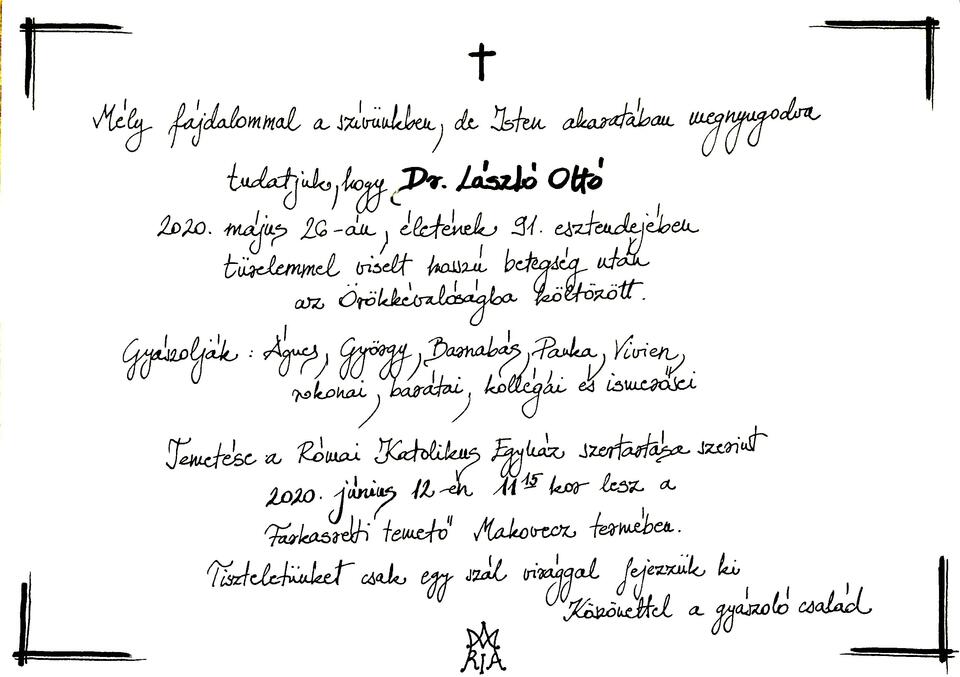 Mély fájdalommal a szívünkben, de Isten akaratában megnyugodva
tudatjuk, hogy Dr. László Ottó
2020. május 26-án, életének 91. esztendejében
türelemmel viselt hosszú betegség után
az Örökkévalóságba költözött.
Gyászolják: Ágnes, György, Barnabás, Panka, Vivien,
rokonai, barátai, kollégái és ismerősei
Temetése a Római Katolikus Egyház szertartása szerint
2020. június 12-én 11 15 kor lesz a
Farkasréti temető Makovecz termében.
Tiszteletünket csak egy szál virággal fejezzük ki
Köszönettel a gyászoló család
MARIA